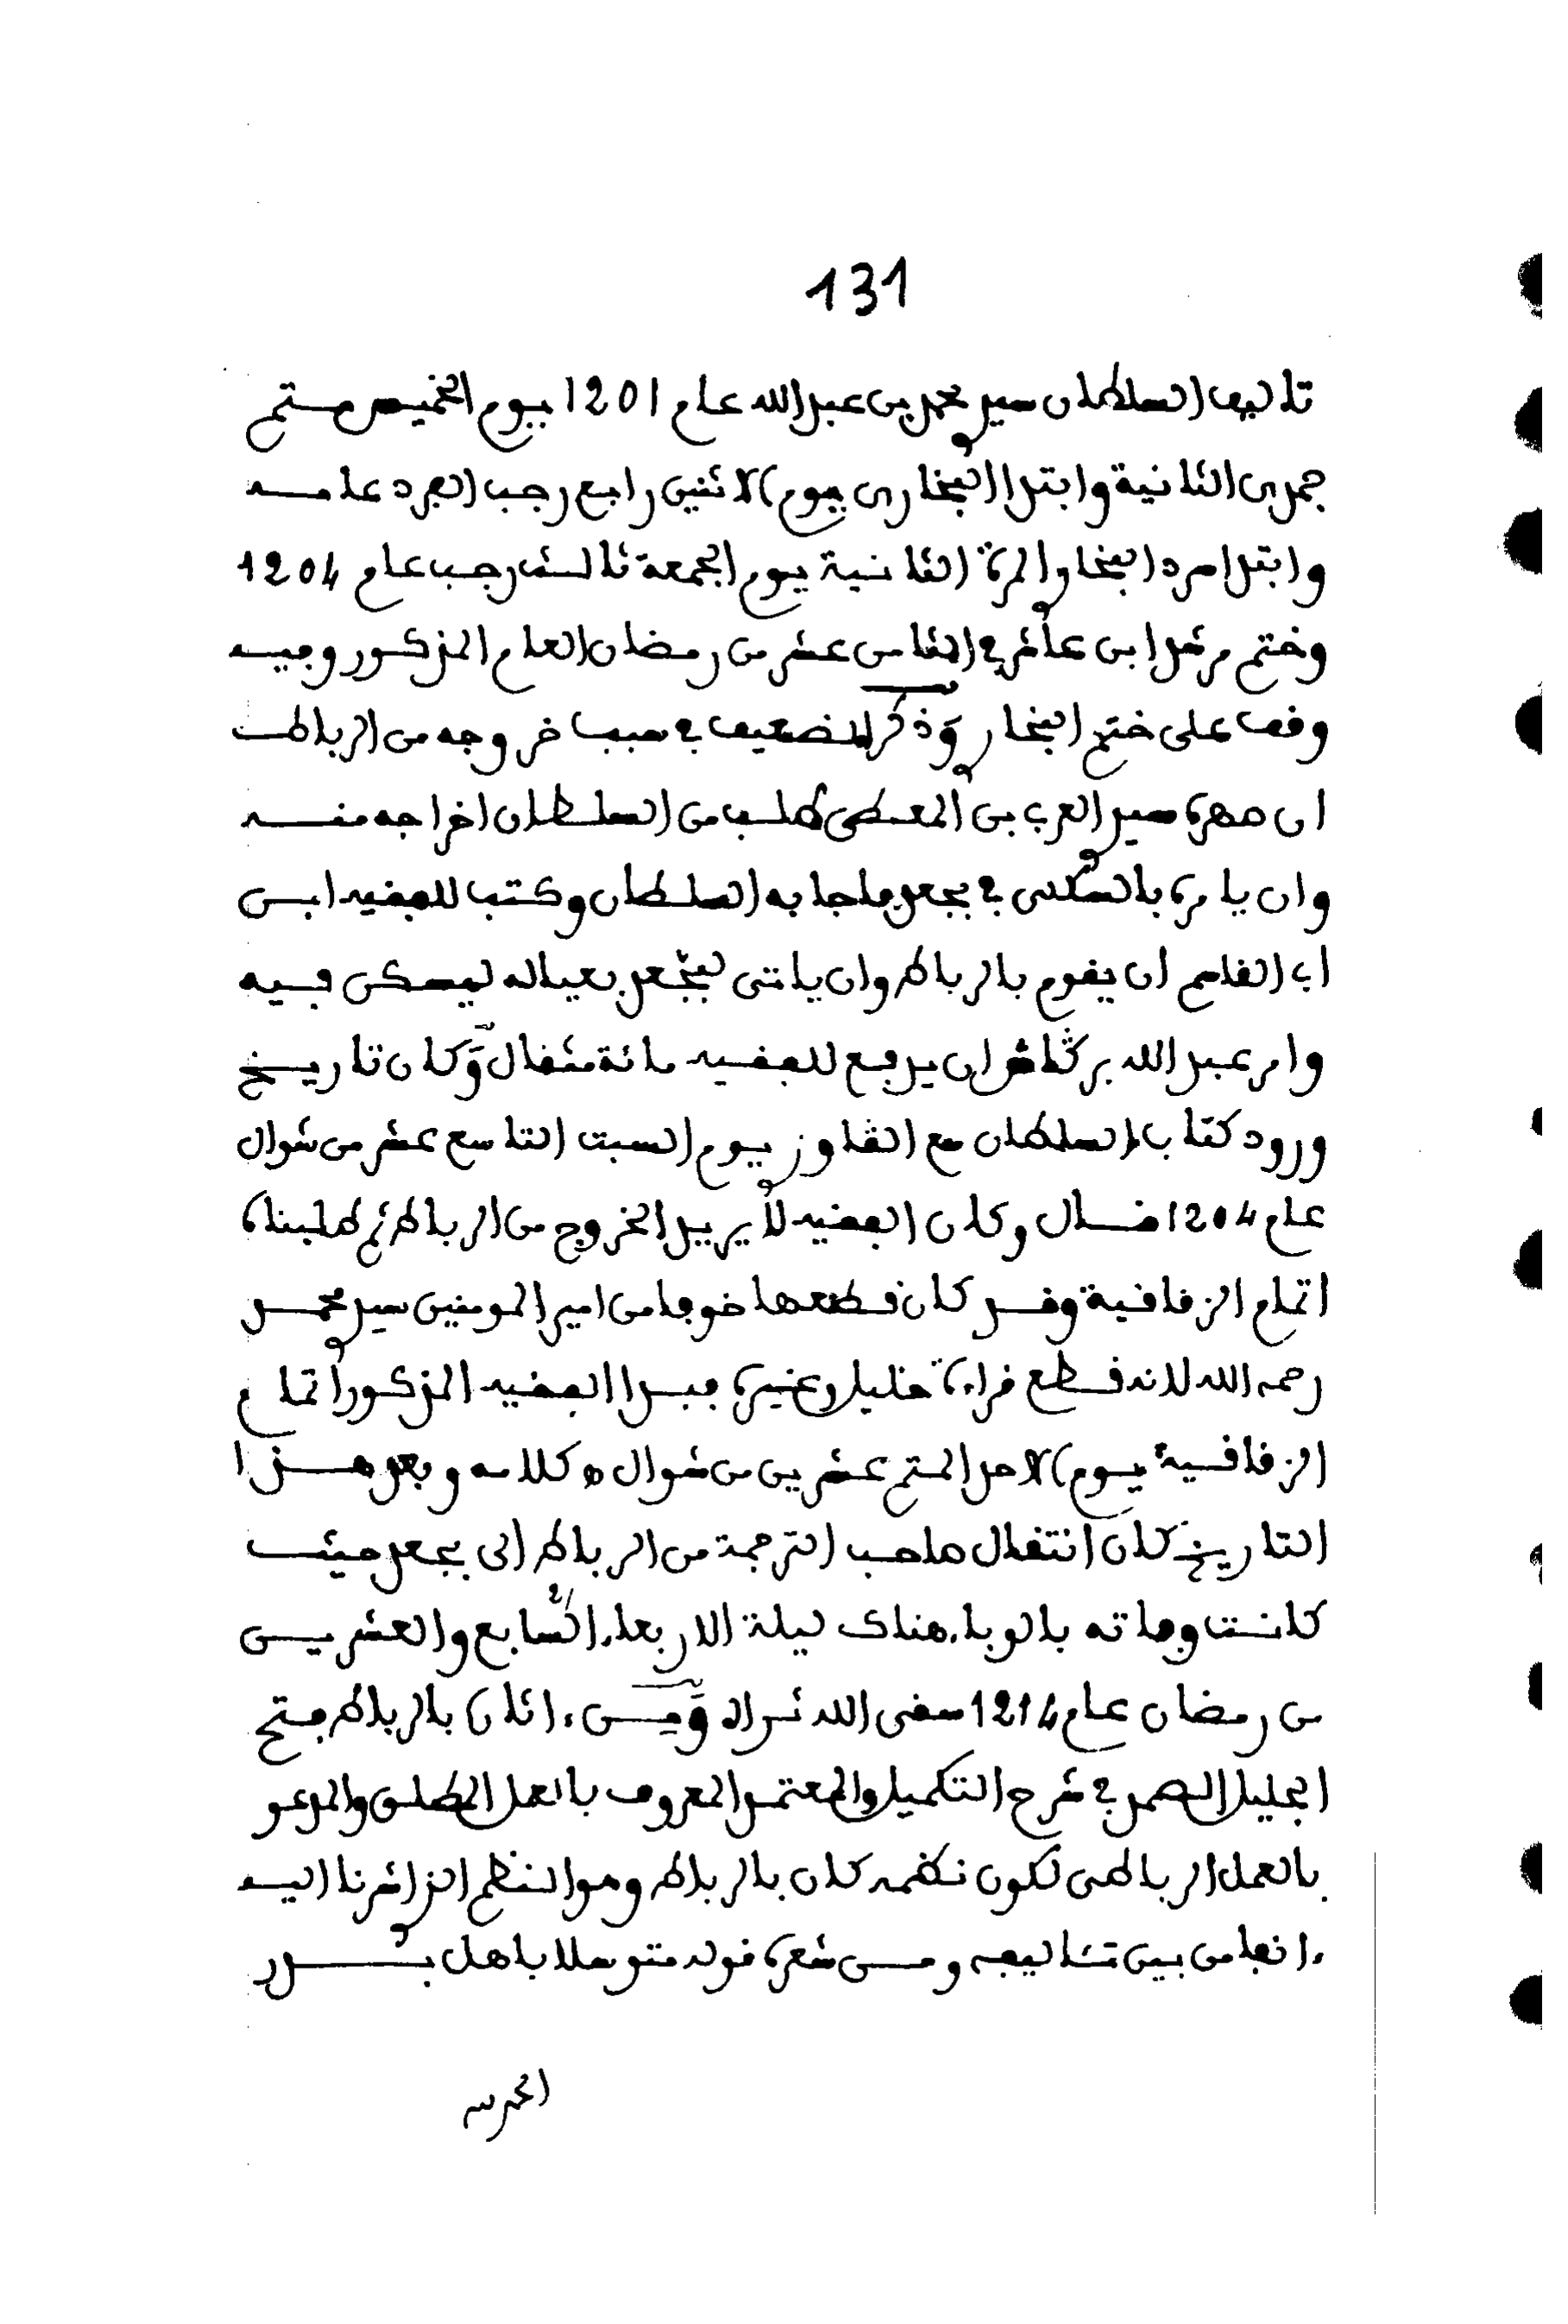 131
تاليف السلطان سيدي محمد بن عبد الله عام 1201 يوم الخميس متم
جمدى الثانية وابتدا البخارى يوم الاثنين رابع رجب الفرد عامه
وابتدا سرد البخاري المرة الثانية يوم الجمعة ثالث رجب عام 1204
وختم مرشد ابن عاشر في الثامن عشر من رمضان العام المذكور وفيه
وقف على ختم البخاري وذكر الضعيف في سبب خروجه من الرباط
ان صهره سيدي العربي بن المعطى طلب من السلطان اخراجه منه
وان يامره بالسكنى في بجعد فاجابه السلطان وكتب للفقيه ابن
ابي القاسم ان يقوم بالرباط وان ياتى لبجعد بعياله ليسكن فيه
وامر عبد الله بركاش ان يدفع للفقيه مائة مثقال وكان تاريخ
ورود كتاب السلطان مع الڤاوزي يوم السبت التاسع عشر من شوال
عام 1204 قال وكان الفقيه لا يريد الخروج من الرباط ثم طلبناه
اتمام الزقاقية وقد كان قطعها خوفا من امير المومنين سيدي محمد
رحمه الله لانه قطع قراءة خليل وغيره فبدا الفقيه المذكور اتمام
الزقاقية يوم الاحد المتم عشرين من شوال ه كلامه وبعد هذا
التاريخ كان انتقال صاحب الترجمة من الرباط الى بجعد حيث
كانت وفاته بالوباء هناك ليلة الاربعاء السابع والعشرين
من رمضان عام 1214 سقى الله ثراه ومن ءاثاره بالرباط فتح
الجليل الصمد في شرح التكميل والمعتمد المعروف بالعمل المطلق والمدعو
بالعمل الرباطى لكون نظمه كان بالرباط وهو النظم الذي اشرنا اليه
ءانفا من بين تئاليفه ومن شعره قوله متوسلا باهل بدر
الحمد لله